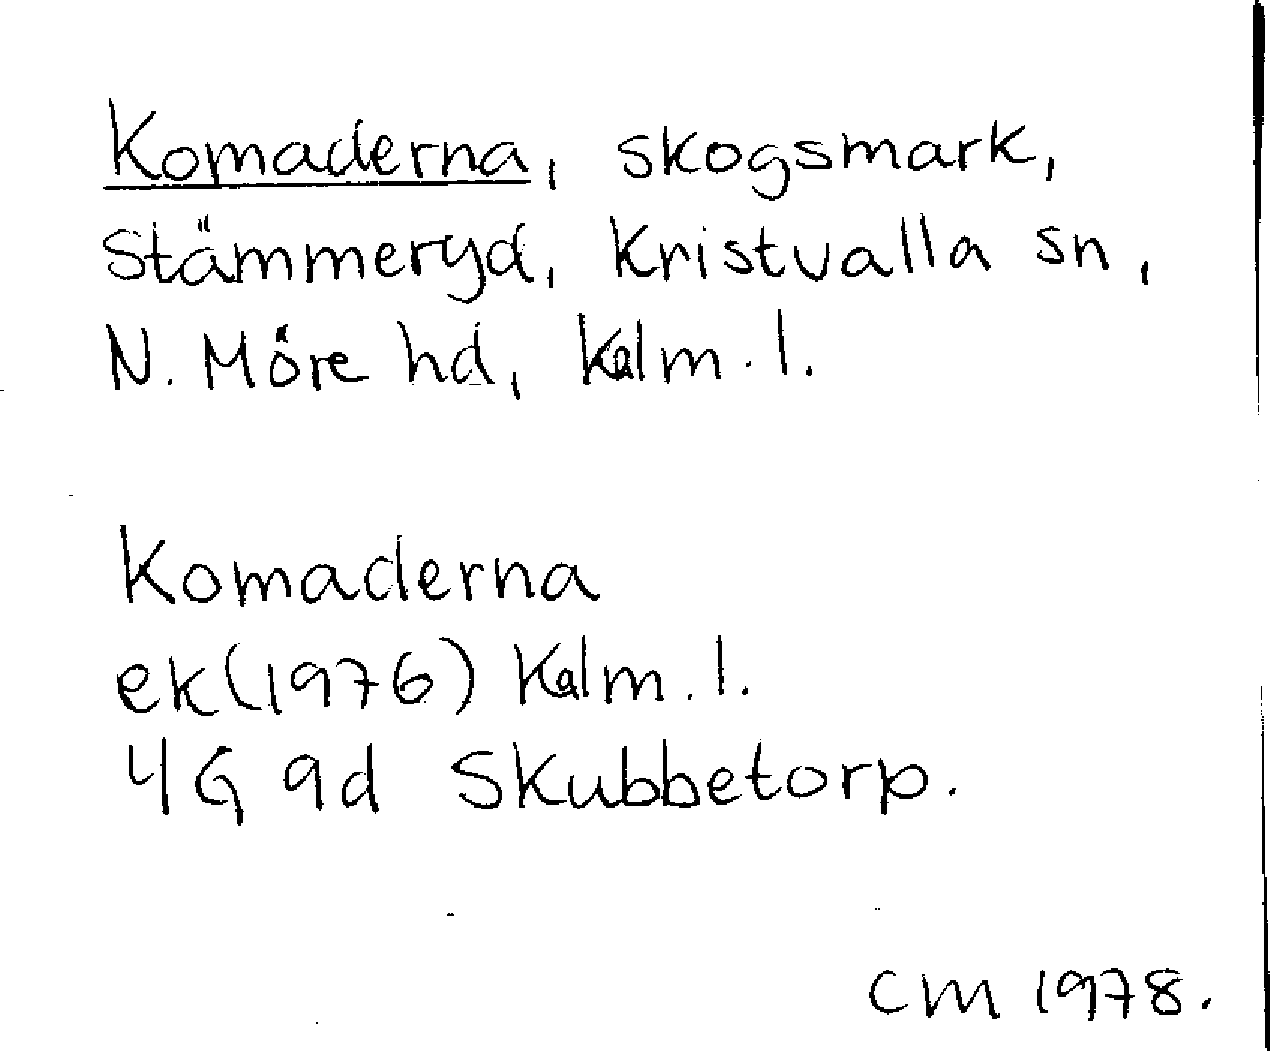 Komaderna, skogsmark,
Stämmeryd, Kristvalla sn,
N. Möre hd, Kalm. l.
Komaderna
ek (1976) Kalm. l.
4G 9d Skubbetorp.
CM 1978.